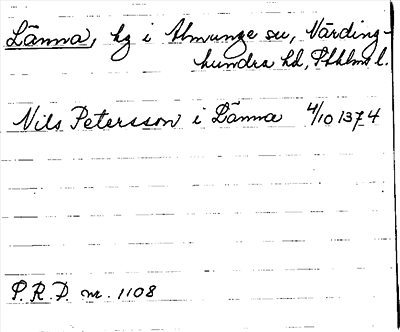 Länna, hg i Almunge sn, Närding-
hundra hd, Sthlms l.
Nils Petersson i Länna 4/10 1374
P.R.P. nr. 1108